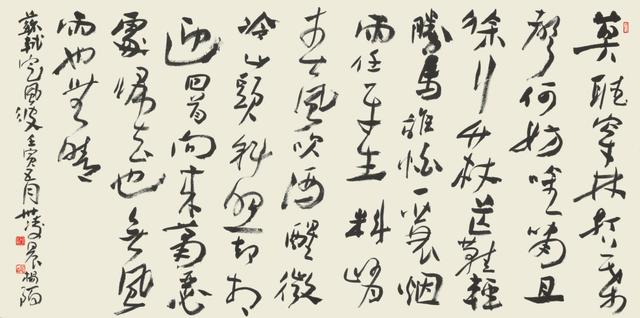 莫聽穿林打葉
聲何妨吟嘯且
徐行竹杖芒鞋輕
勝馬誰怕一蓑烟
雨任平生料峭
春風吹酒醒微
冷山頭斜照却相
迎回首向来蕭瑟
處歸去也無風
雨也無晴
蘇軾定風波壬寅五月